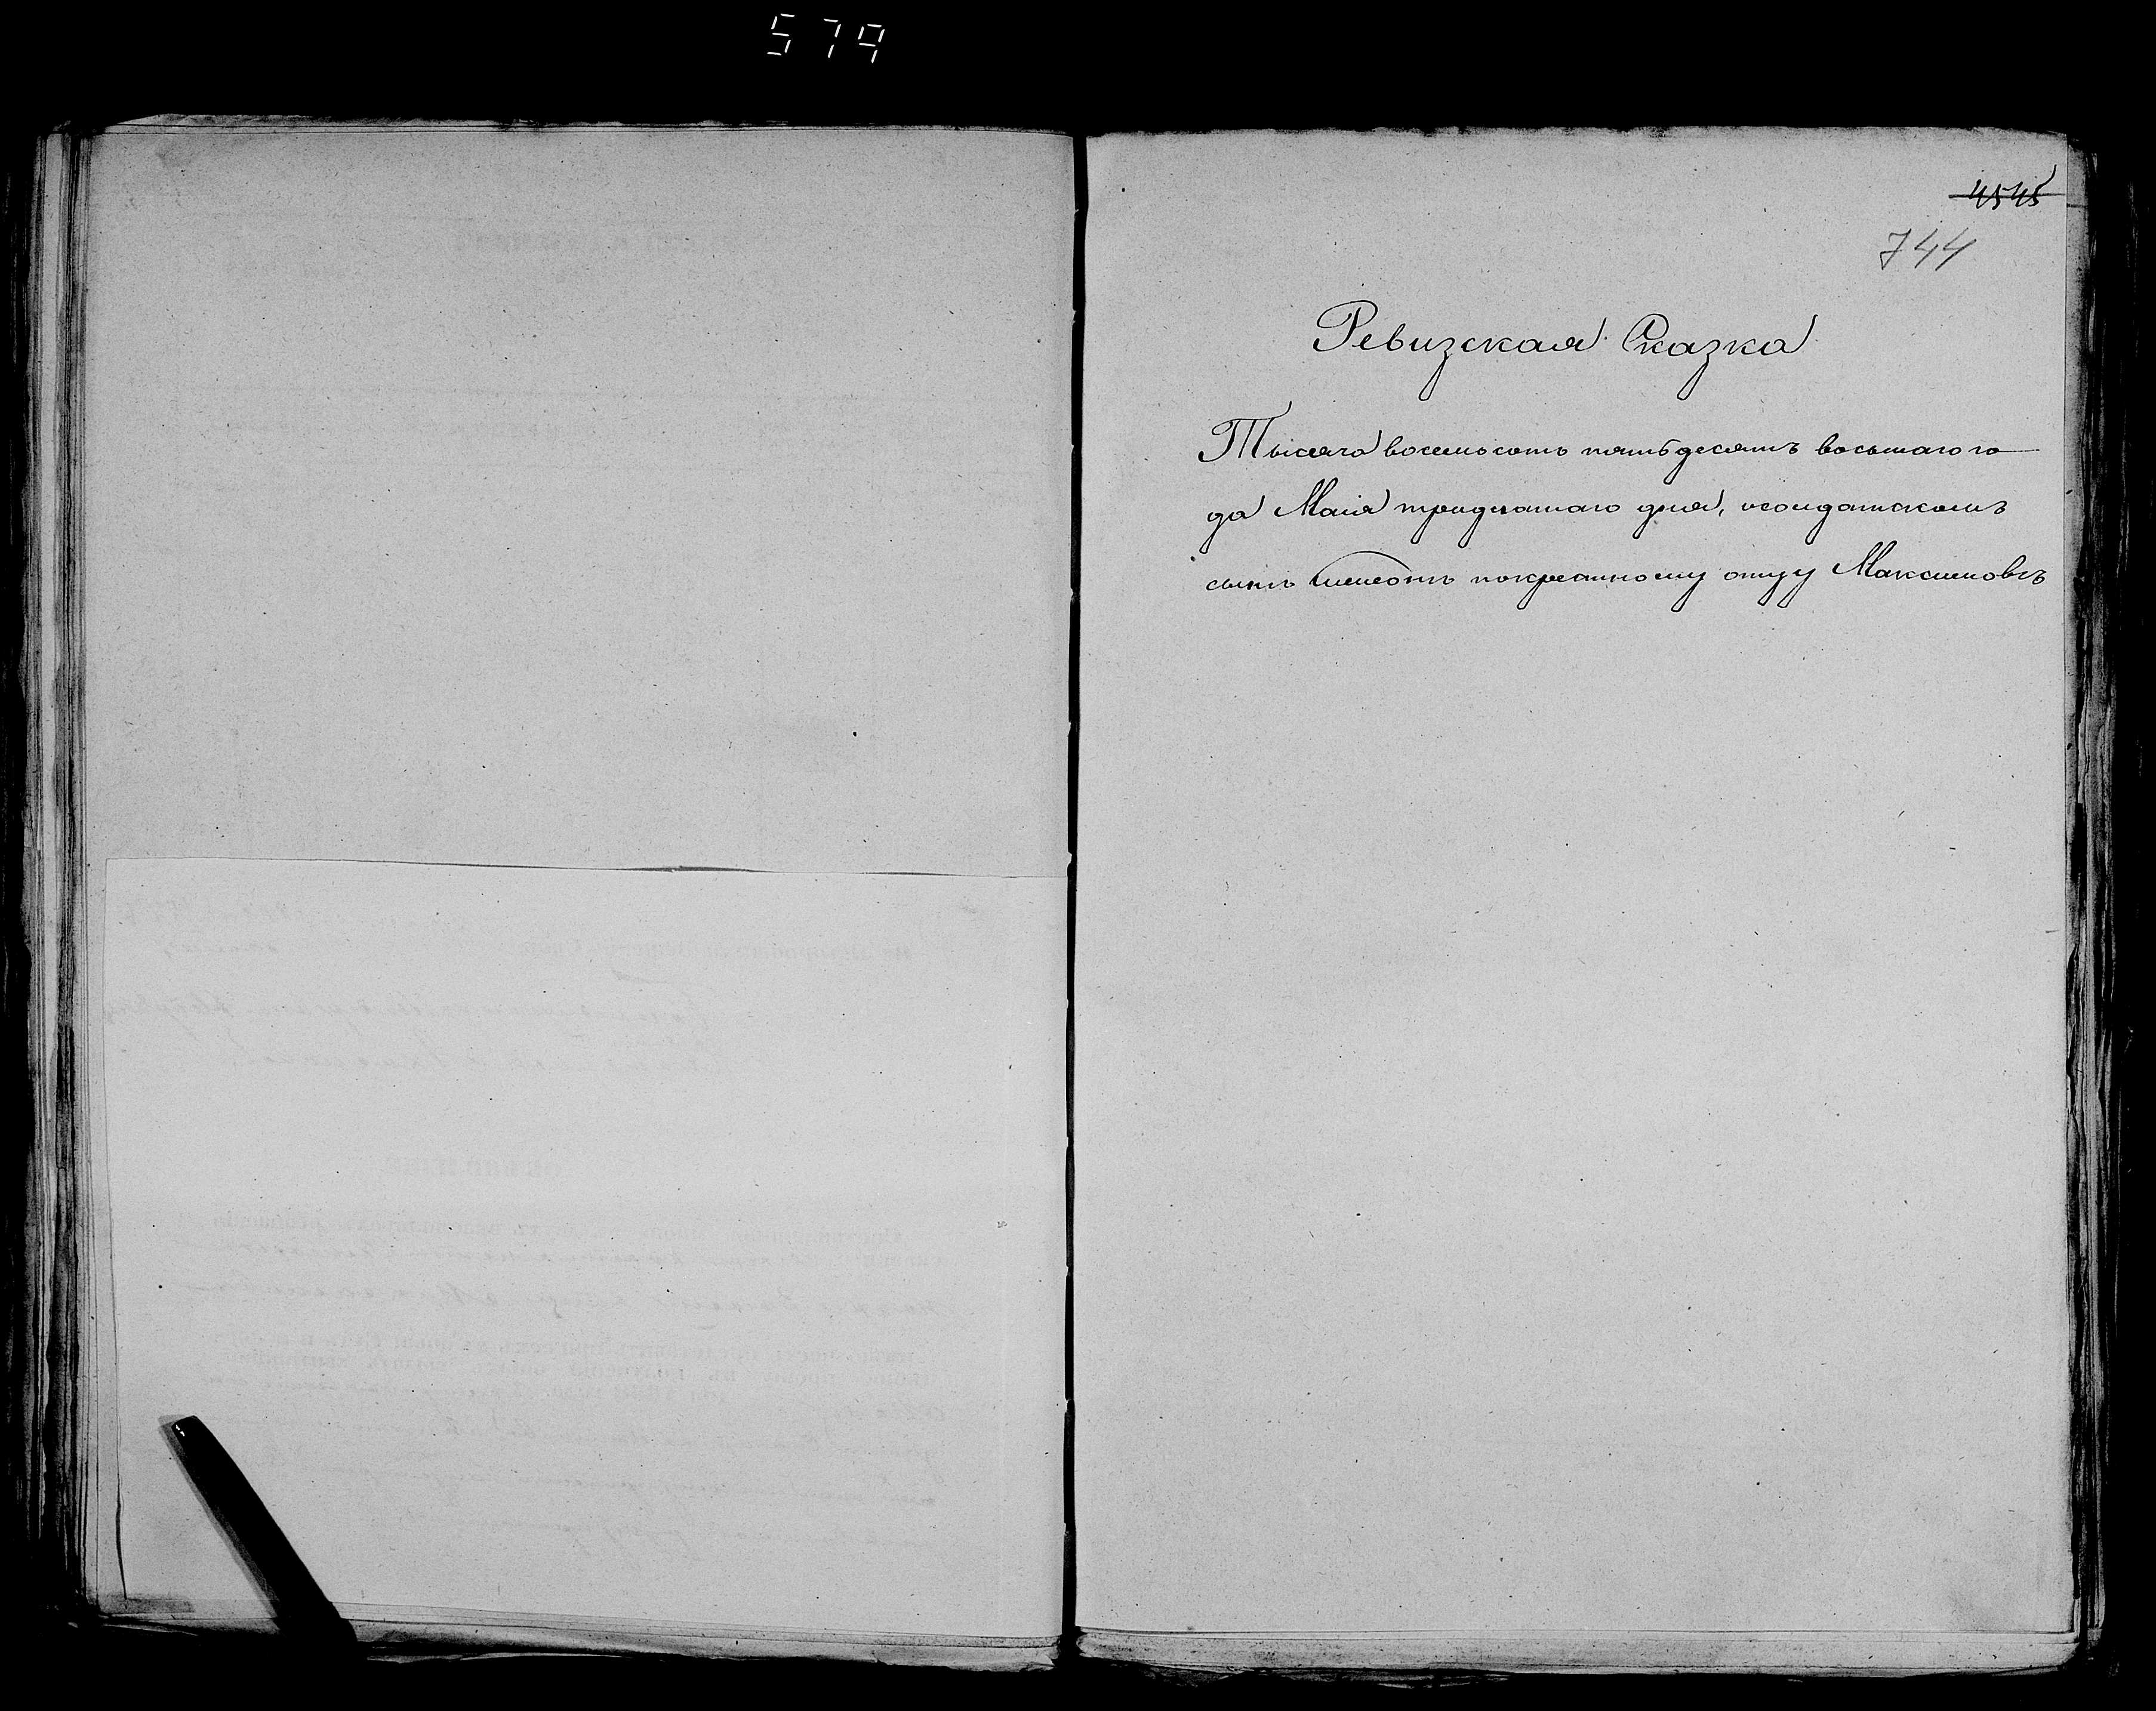 579
4545
744
Ревизская Сказка
Тысяча восемьсотъ пятьдесятъ восьмаго го
да Маія тридцатаго дня, осолдатскомъ
сынѣ покрестному отцу Максимовѣ